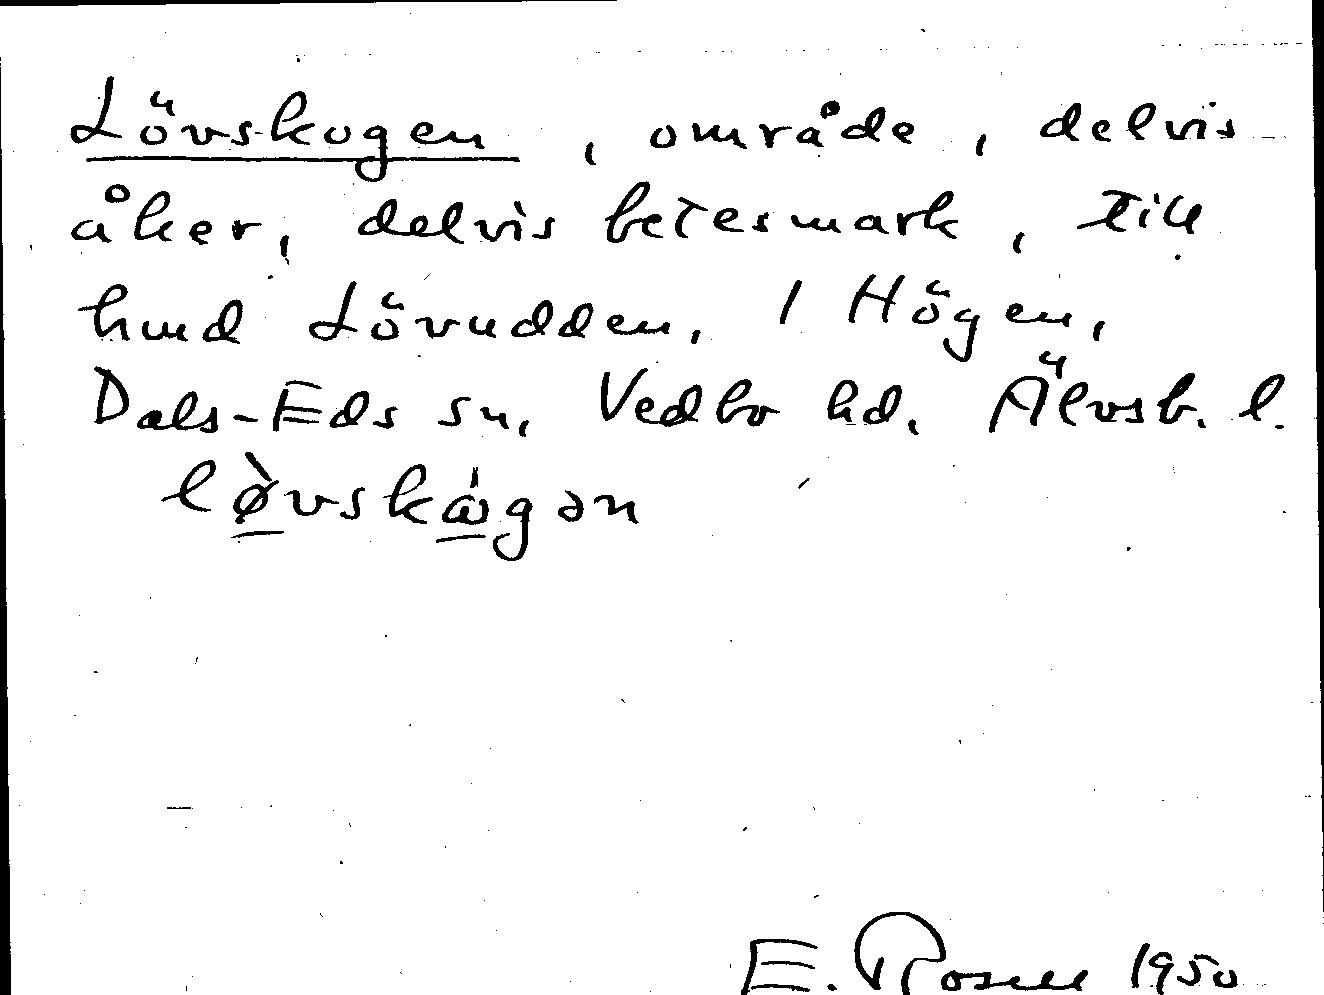 Lövskogen, område, delvis
åker, delvis betesmark, till
hmd Lövudden, 1 Högen,
Dals-Eds sn, Vedbo hd. Älvsb. l.
lø̀vskɷ́gən
E. Rosell 1950